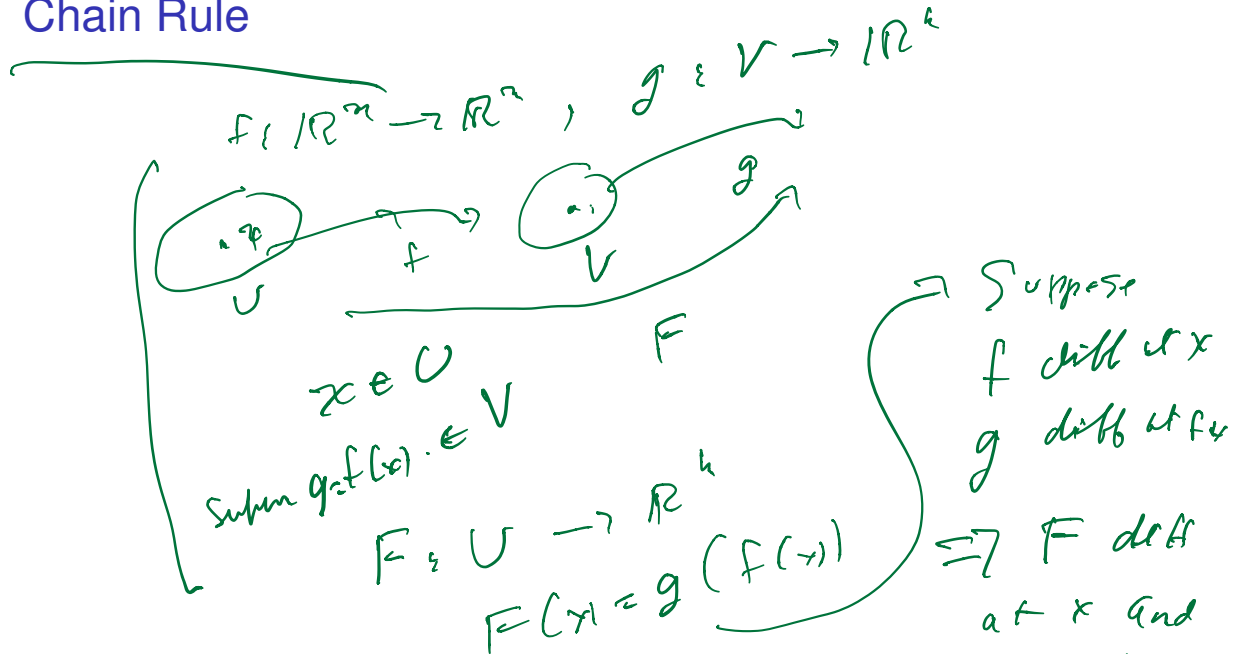 Chain Rule
f : ℝ^m → ℝ^n , g : V → ℝ^k
x
f
g
U
V
F
x ∈ U
y = f(x) ∈ V
F : U → ℝ^k
F(x) = g(f(x))
→ Suppose
f diff at x
g diff at fx
⇒ F diff
at x and